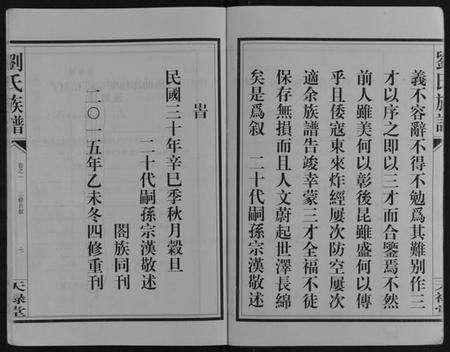 義不容辭不得不勉爲其難別作三
才以序之即以三才而合鑒焉不然
前人雖美何以彰後昆雖盛何以傳
乎且倭寇東來炸經屢次防空屢次
適余族譜告竣幸蒙三才全福不徒
保存無損而且人文蔚起世澤長綿
矣是爲叙　二十代嗣孫宗漢敬述
旹
民國三十年辛巳季秋月穀旦
二十代嗣孫宗漢敬述
二〇一五年乙未冬四修重刊
閤族同刊
劉氏族譜
卷之一
七
天祿堂